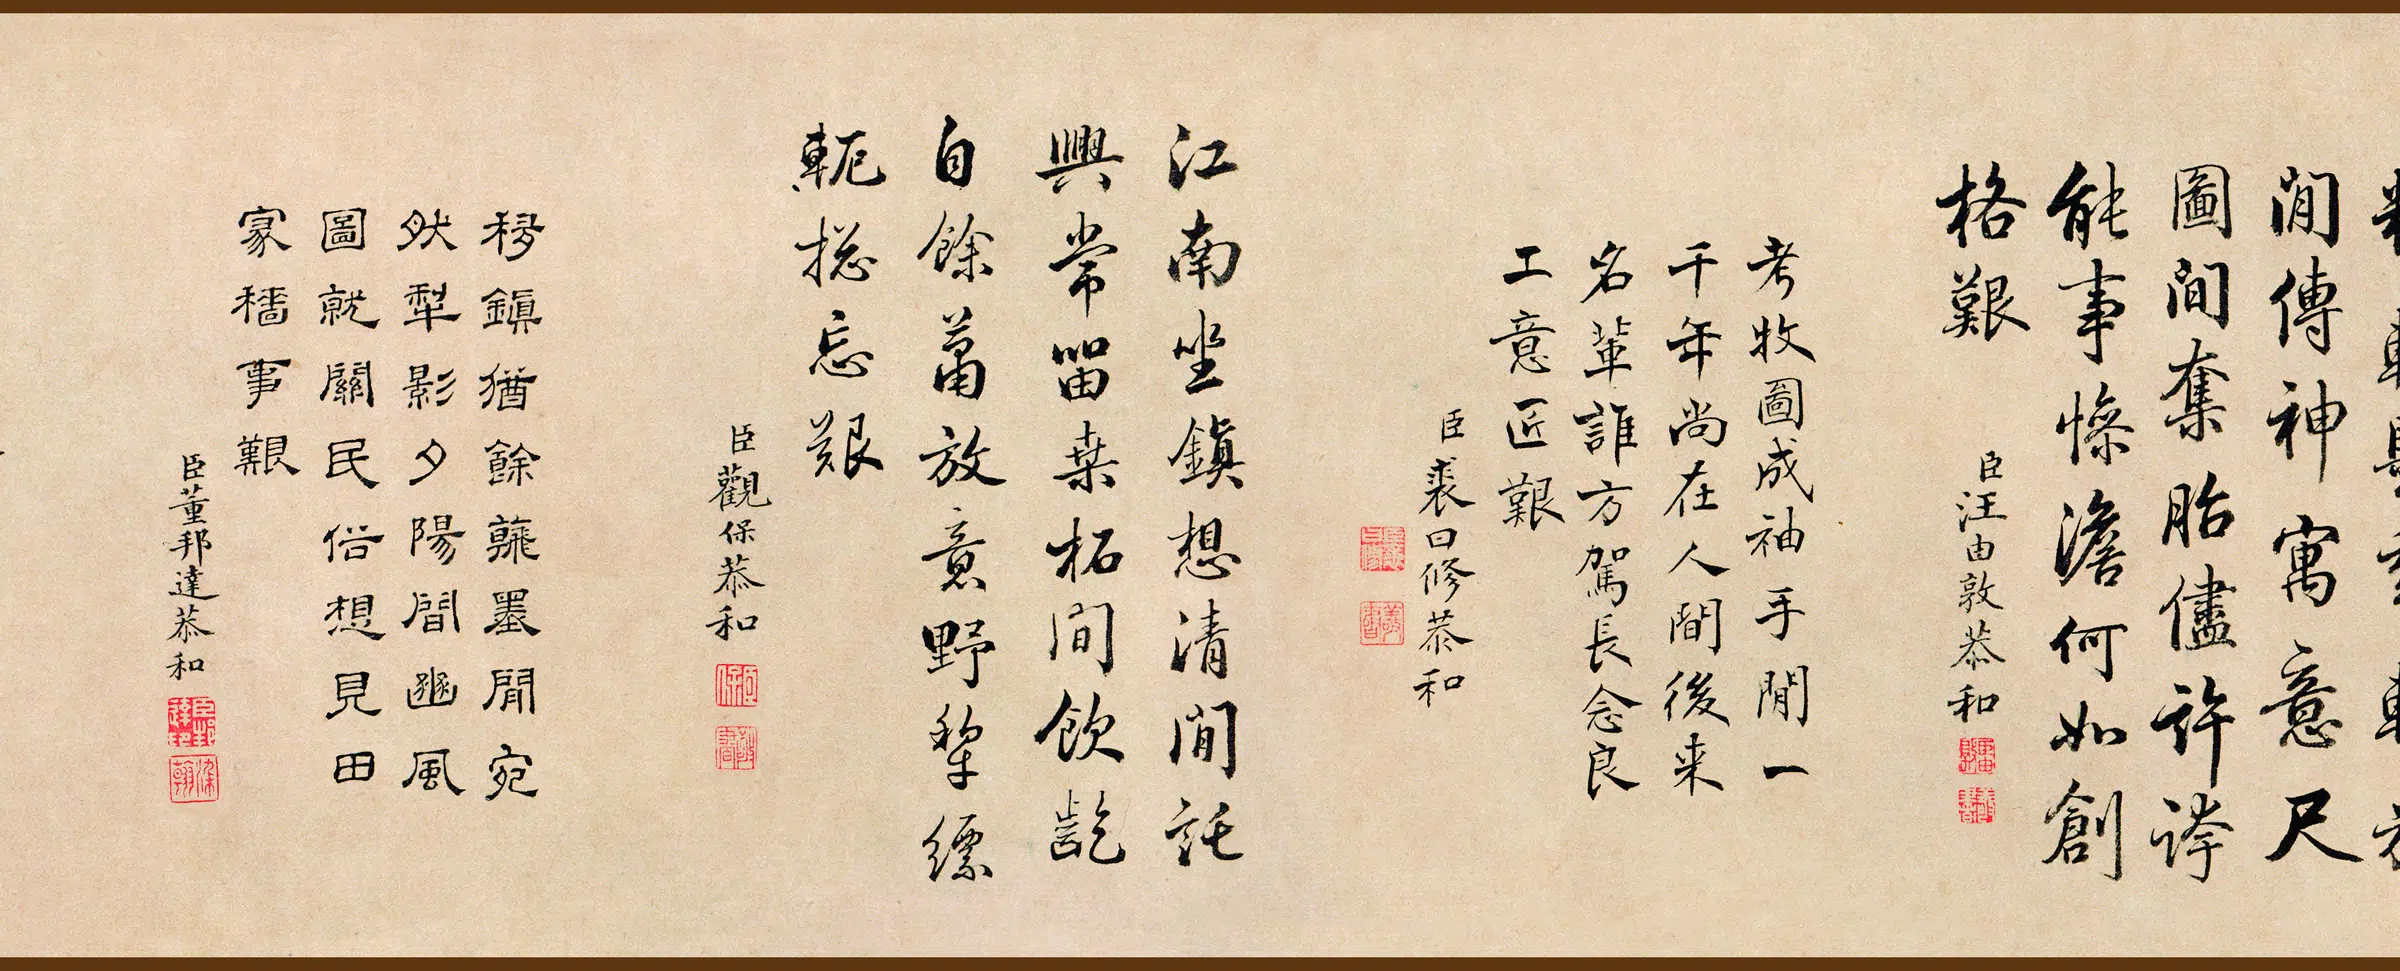 閒傳神寓意尺
圖間奪胎儘許誇
能事慘澹何如創
格艱
臣汪由敦恭和
考牧圖成袖手閒一
千年尚在人間後来
名輩誰方駕長念良
工意匠艱
臣裘曰修恭和
江南坐鎮想清閒託
興常留桒柘間飲齕
自餘蕭放意野犂縹
軛捴忘艱
臣觀保恭和
移鎮猶餘蘸墨閒宛
然犁影夕陽間豳風
圖就關民俗想見田
家穡事艱
臣董邦達恭和